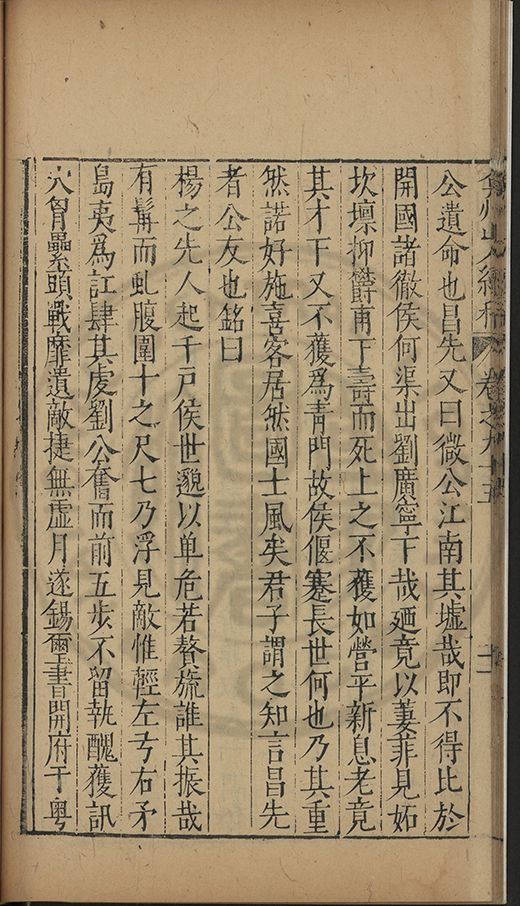 弇州山人續稿 卷之九十五
公遺命也昌先又曰微公江南其墟哉即不得比於
開國諸徹侯何渠出劉廣寧下哉廼竟以萋菲見妬
坎壈抑欝甫下壽而死上之不獲如營平新息老竟
其才下又不獲爲青門故侯偃蹇長世何也乃其重
然諾好施喜客居然國士風矣君子謂之知言昌先
者公友也銘曰
楊之先人起千戶侯世邈以单危若贅旒誰其振哉
有髯而虬腹圍十之尺七乃浮見敵惟輕左弓右矛
島夷爲訌肆其虔劉公奮而前五步不留執醜獲訊
穴胷纍頭戰靡遺敵捷無虛月遂錫璽書開府于粤